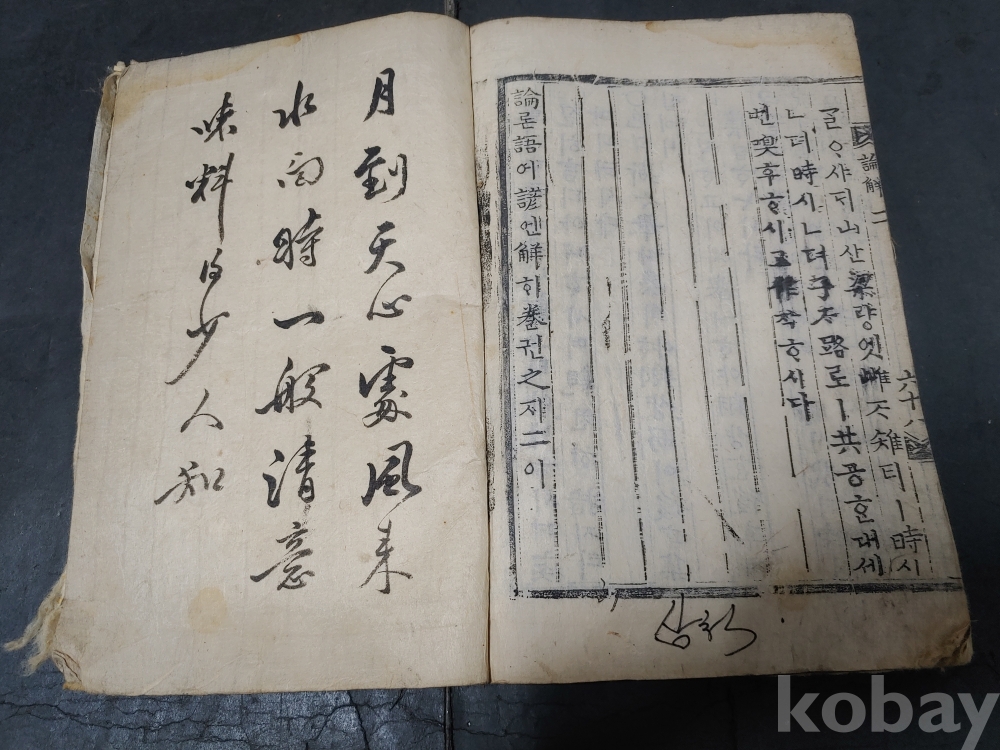 論解 二 六十八
ᄀᆞᆯᄋᆞ샤ᄃᆡ山산梁량엣雌ᄌᆞ雉티ㅣ時시
ᄂᆞ뎌時시ᄂᆞ뎌子ᄌᆞ路로ㅣ共공ᄒᆞᆫ대세
번嗅후ᄒᆞ시고作작ᄒᆞ시다
論론語어諺언解ᄒᆡ卷권之지二이
月到天心處風来
水面時一般清意
味料得少人知
kobay